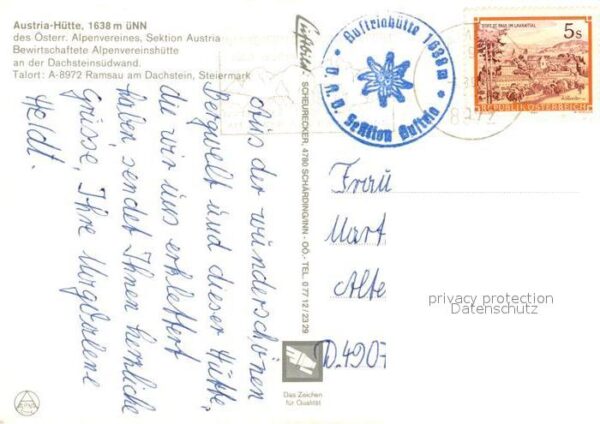 Austria-Hütte, 1638 m üNN
des Österr. Alpenvereines, Sektion Austria
Bewirtschaftete Alpenvereinshütte
an der Dachsteinsüdwand.
Talort: A-8972 Ramsau am Dachstein, Steiermark
Aus der wunderschönen
Bergwelt und dieser Hütte,
die wir uns erklettert
haben sendet Ihnen herzliche
Grüsse, Ihre
Heidt.
Luftbild
SCHEURECKER, 4780 SCHÄRDING/INN - OÖ., - TEL. 0 77 12 / 23 29
Das Zeichen
für Qualität
Austriahütte 1638 m
Ö. A. V. Sektion Austria
8972
5 s
REPUBLIK ÖSTERREICH
Frau
Mart
Alte
D.4907
privacy protection
Datenschutz